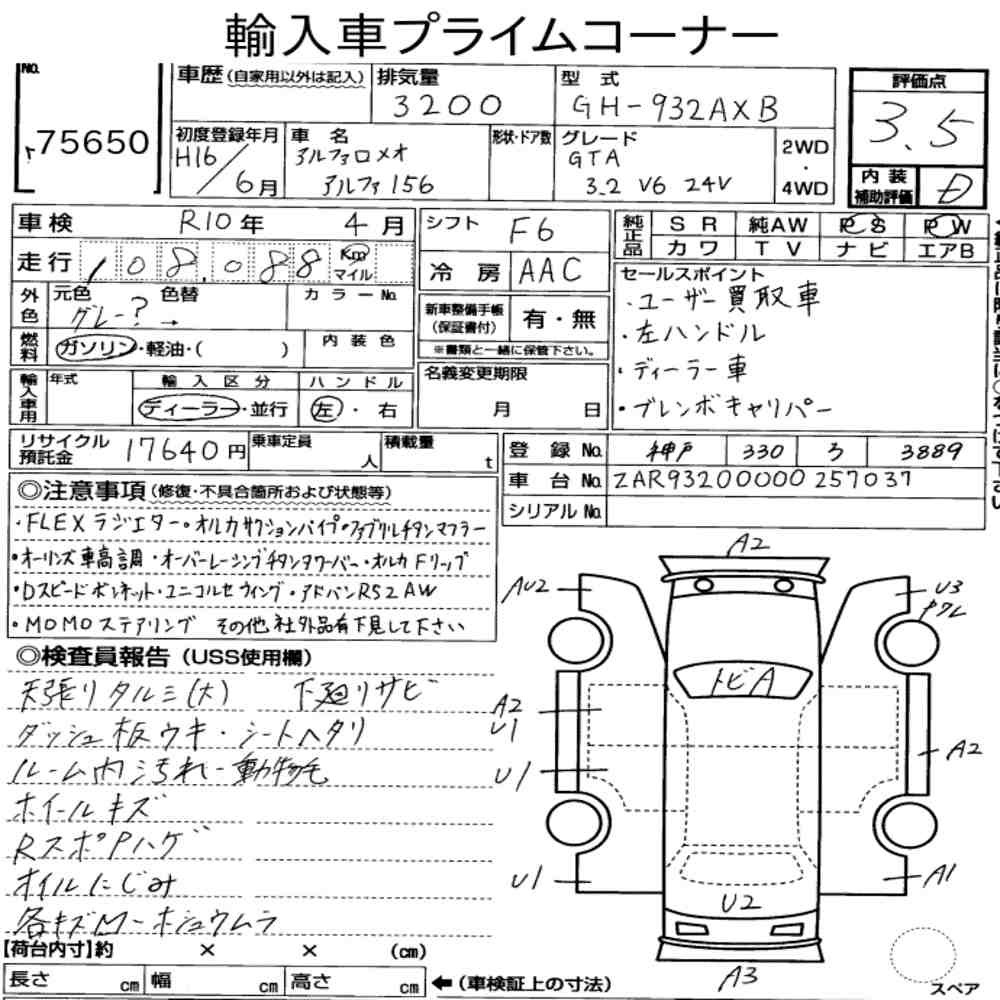 輸入車プライムコーナー
No.
75650
車歴 (自家用以外は記入)
排気量
3200
型 式
GH-932AXB
評価点
3.5
初度登録年月
H16/6月
車 名
アルファロメオ
アルファ156
形状・ドア数
グレード
GTA
3.2 V6 24V
2WD
・
4WD
内装
補助評価
D
車検 R10年 4月
シフト F6
純正品
SR 純AW PS PW
カワ TV ナビ エアB
走行 108,088 Km
マイル
冷房 AAC
外色
元色 色替 カラーNo.
グレー? →
新車整備手帳
(保証書付)
有・無
※書類と一緒に保管下さい。
セールスポイント
・ユーザー買取車
・左ハンドル
・ディーラー車
・ブレンボキャリパー
燃料
ガソリン・軽油・( )
内装色
輸入車用
年式 輸入区分 ハンドル
ディーラー・並行 左・右
名義変更期限
月 日
リサイクル
預託金
17640円
乗車定員
人
積載量
t
登録No. 神戸 330 ろ 3889
車台No. ZAR93200000257037
シリアルNo.
◎注意事項 (修復・不具合箇所および状態等)
・FLEXラジエター・オルカサクションパイプ・ファブリルチタンマフラー
・オーリンズ車高調・オーバーレーシングチタンタワーバー・オルカFリップ
・Dスピードボンネット・ユニコルセウィング・アドバンRS2AW
・MOMOステアリング その他社外品有下見して下さい
◎検査員報告 (USS使用欄)
天張りタルミ(大) 下廻りサビ
ダッシュ板ウキ・シートヘタリ
ルーム内汚れ-動物毛
ホイールキズ
RスポPハゲ
オイルにじみ
各キズM-ホシュウムラ
A2
AU2
U3
トビA
A2
U1
A2
U1
U1
A1
U2
A3
スペア
【荷台内寸】約 × × (cm)
長さ cm 幅 cm 高さ cm
←(車検証上の寸法)